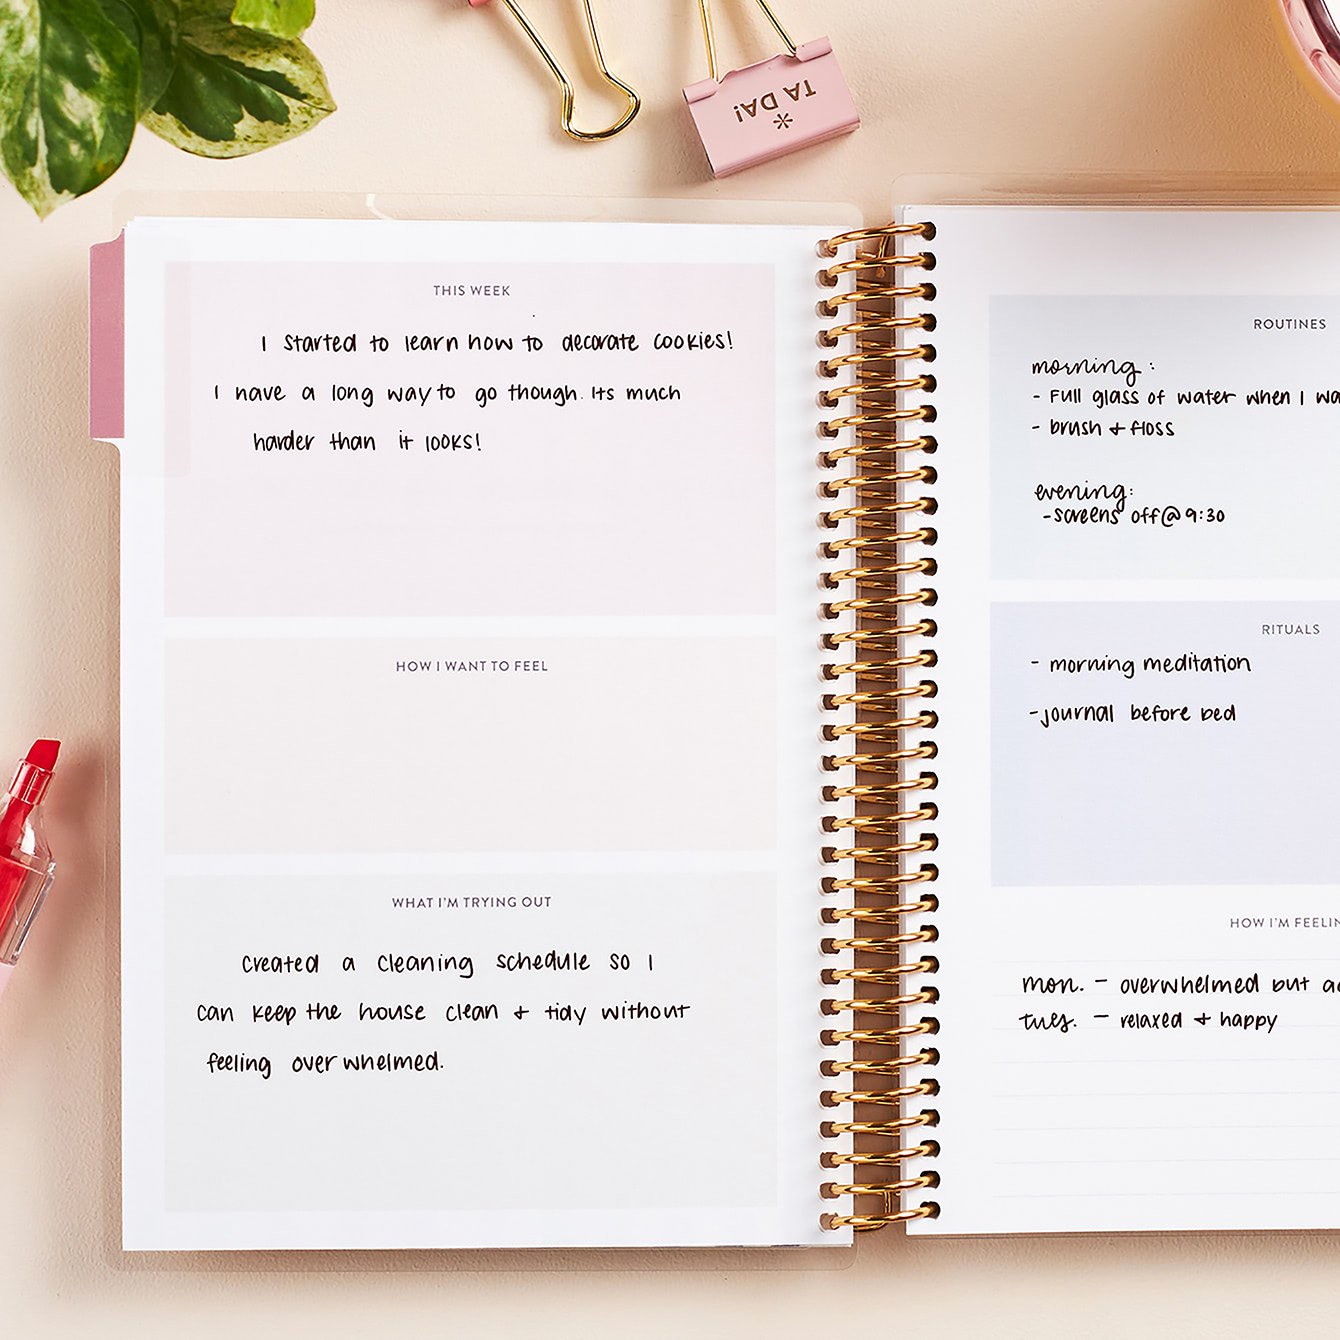 TA DA!
THIS WEEK
I started to learn how to decorate cookies!
I have a long way to go though. Its much
harder than it looks!
HOW I WANT TO FEEL
WHAT I'M TRYING OUT
Created a cleaning schedule so I
can keep the house clean + tidy without
feeling overwhelmed.
ROUTINES
morning:
- Full glass of water when I wa
- brush + floss
evening:
- screens off @ 9:30
RITUALS
- morning meditation
- journal before bed
HOW I'M FEELIN
mon. - overwhelmed but
tues. - relaxed + happy